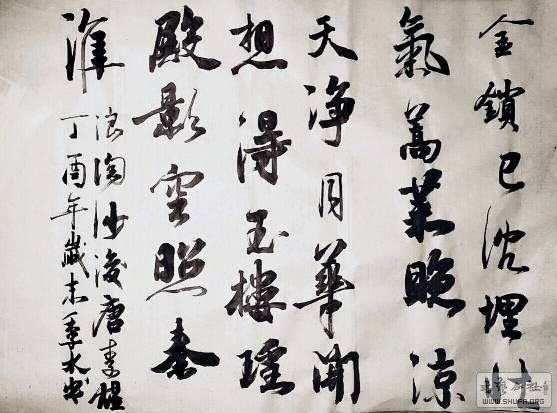 金鎖已沈埋壯
氣蒿萊晚涼
天淨月華開
想得玉樓瑤
殿影空照秦
淮
浪淘沙後唐李煜
丁酉年歲末季水书
WWW.SHUFA.ORG